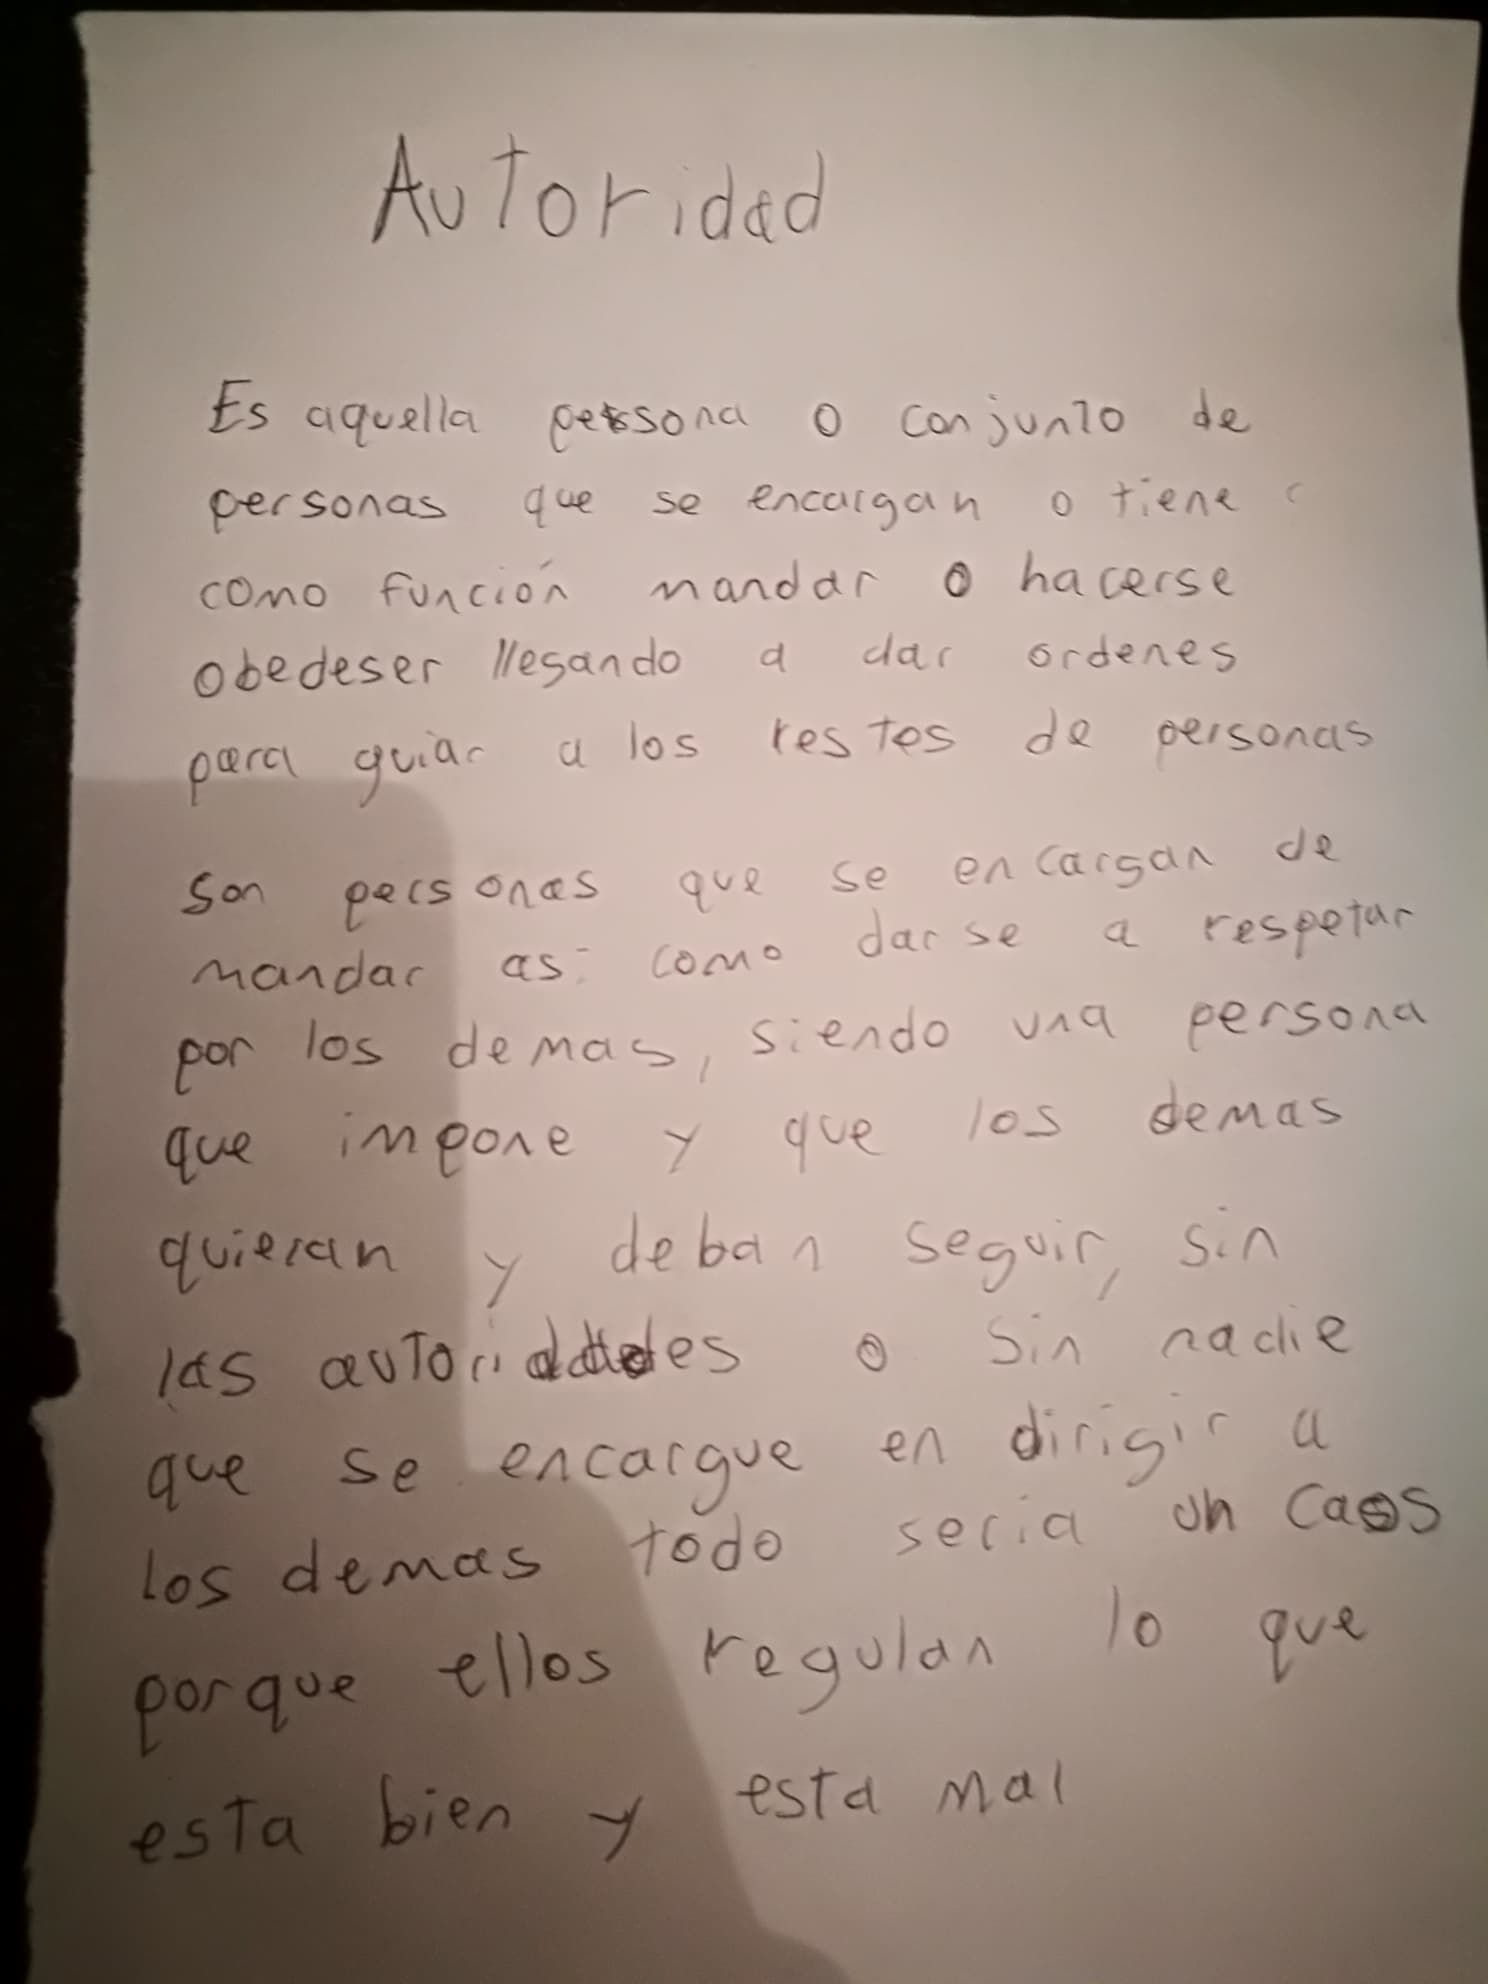 Autoridad
Es aquella persona o conjunto de
personas que se encargan o tiene
como función mandar o hacerse
obedeser llegando a dar ordenes
para guiar a los restos de personas
Son personas que se encargan de
mandar asi como darse a respetar
por los demas, siendo una persona
que impone y que los demas
quieran y deban seguir, sin
las autoridades o sin nadie
que se encargue en dirigir a
los demas todo seria un caos
porque ellos regulan lo que
esta bien y esta mal